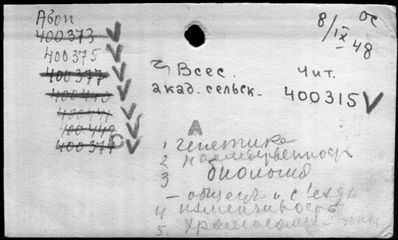 Авон
400373
400375
400377
400441
400449
400377
8/IX 48
ос
Всес.
акад. сельск.
Чит.
400315
А
С
1 генетика
2 наследственность
3 биология
— общест и съезды
4 изменчивость
5. хромосомы